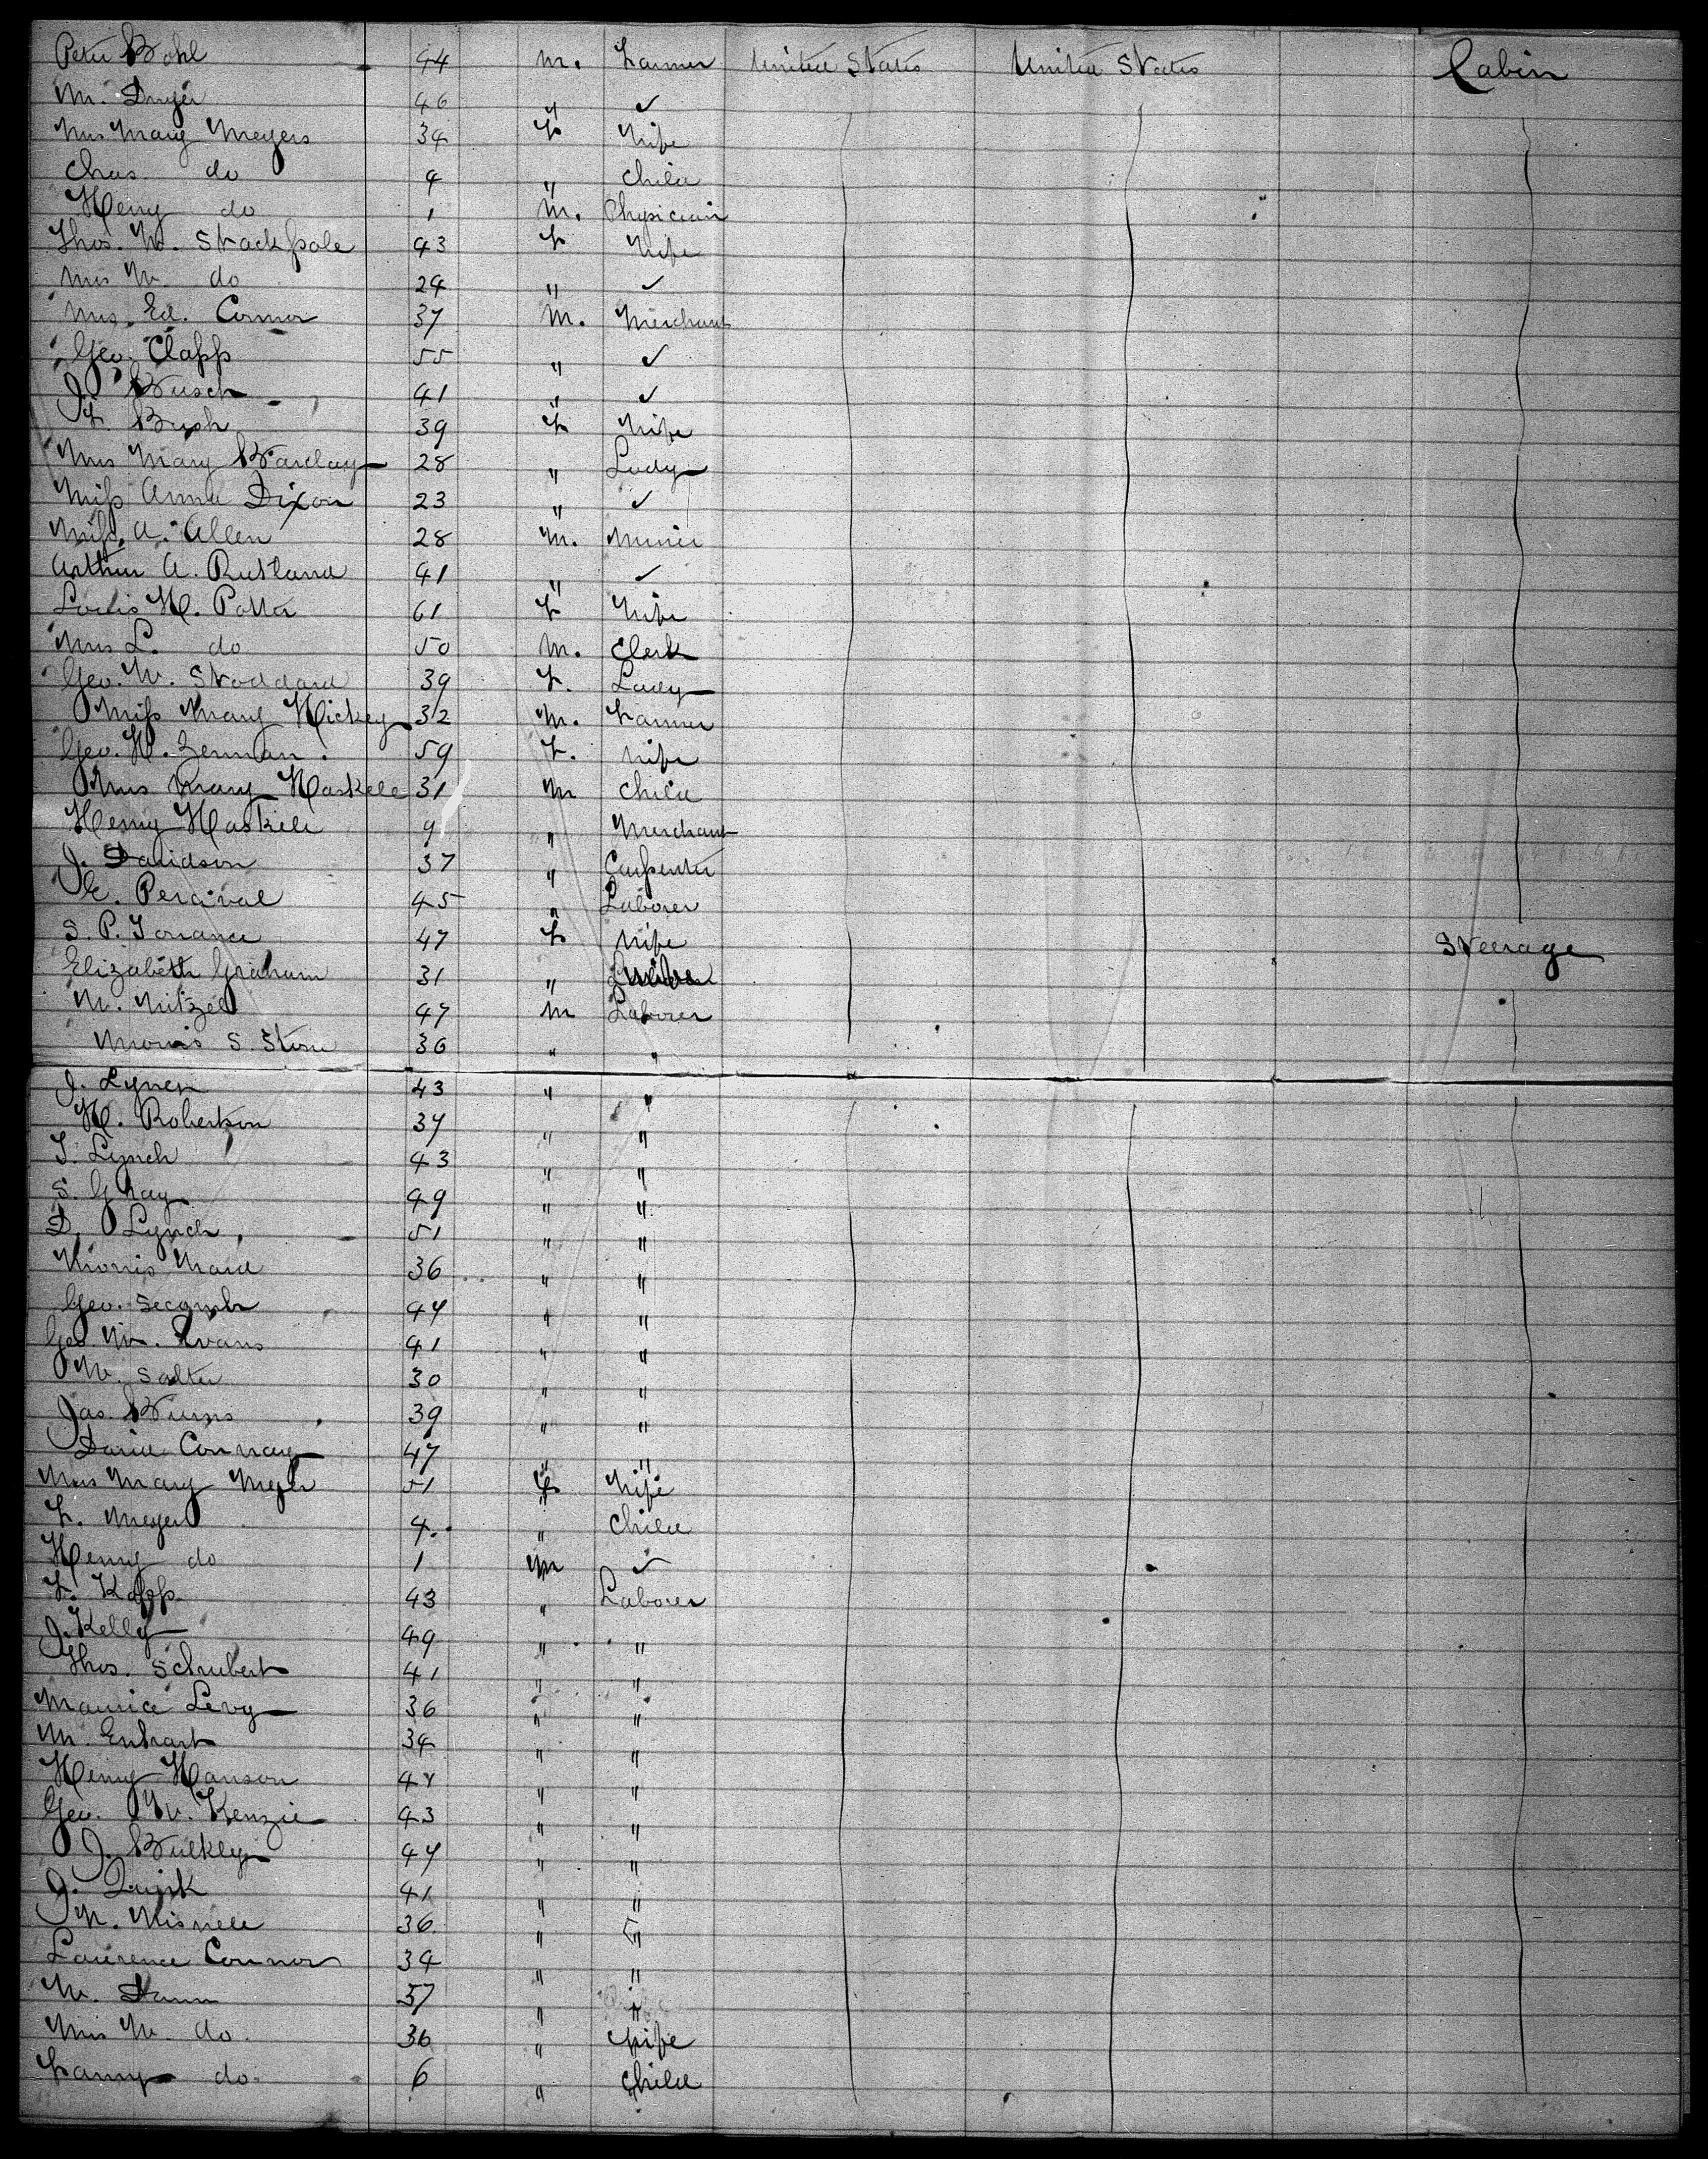 Peter Bohl 44 M. Farmer United States United States Cabin
M. Dwyer 46 " ✓
Mrs Mary Meyers 34 F Wife
Chas do 4 " Child
Henry do 1 M. Physician
Thos. W. Stackpole 43 F Wife
Mrs W. do 24 " ✓
Mrs. Ed. Connor 37 M. Merchant
Geo. Clapp 55 " ✓
J. Busch 41 " ✓
F. Bush 39 F Wife
Mrs Mary Barclay 28 " Lady
Miss Anna Dixon 23 " ✓
Miss. A. Allen 28 M. Miner
Arthur A. Rutland 41 " ✓
Louis H. Potter 61 F Wife
Mrs L. do 50 M. Clerk
Geo. W. Stoddard 39 F. Lady
Miss Mary Hickey 32 M. Farmer
Geo. H. Zerman. 59 F. Wife
Mrs Mary Haskell 31 M Child
Henry Haskell 9 " Merchant
J. Davidson 37 " Carpenter
E. Percival 45 " Laborer
S. P. Torrance 47 F Wife Steerage
Elizabeth Graham 31 "
W. Witzel 47 M Laborer
Morris S. Stone 36 " "
J. Lynch 43 " "
H. Robertson 37 " "
T. Lynch 43 " "
S. Ghay 49 " "
D. Lynch, 51 " "
Morris Ward 36 " "
Geo. Secomb 44 " "
Geo W. Evans 41 " "
W. Salter 30 " "
Jas. Burns 39 " "
Daniel Conway 47 " "
Mrs Mary Meyer 51 F Wife
F. Meyer 4 " Child
Henry do 1 M ✓
F. Kopp 43 " Laborer
J. Kelly 49 " "
Thos. Schubert 41 " "
Maurice Levy 36 " "
M. 34 " "
Henry Hanson 44 " "
Geo. W. Kenzie 43 " "
J. Bulkley 44 " "
J. Quirk 41 " "
36 " "
Laurence Connor 34 " "
W. Dunn 37 " "
Mrs W. do. 36 " Wife
Fanny do. 6 " Child